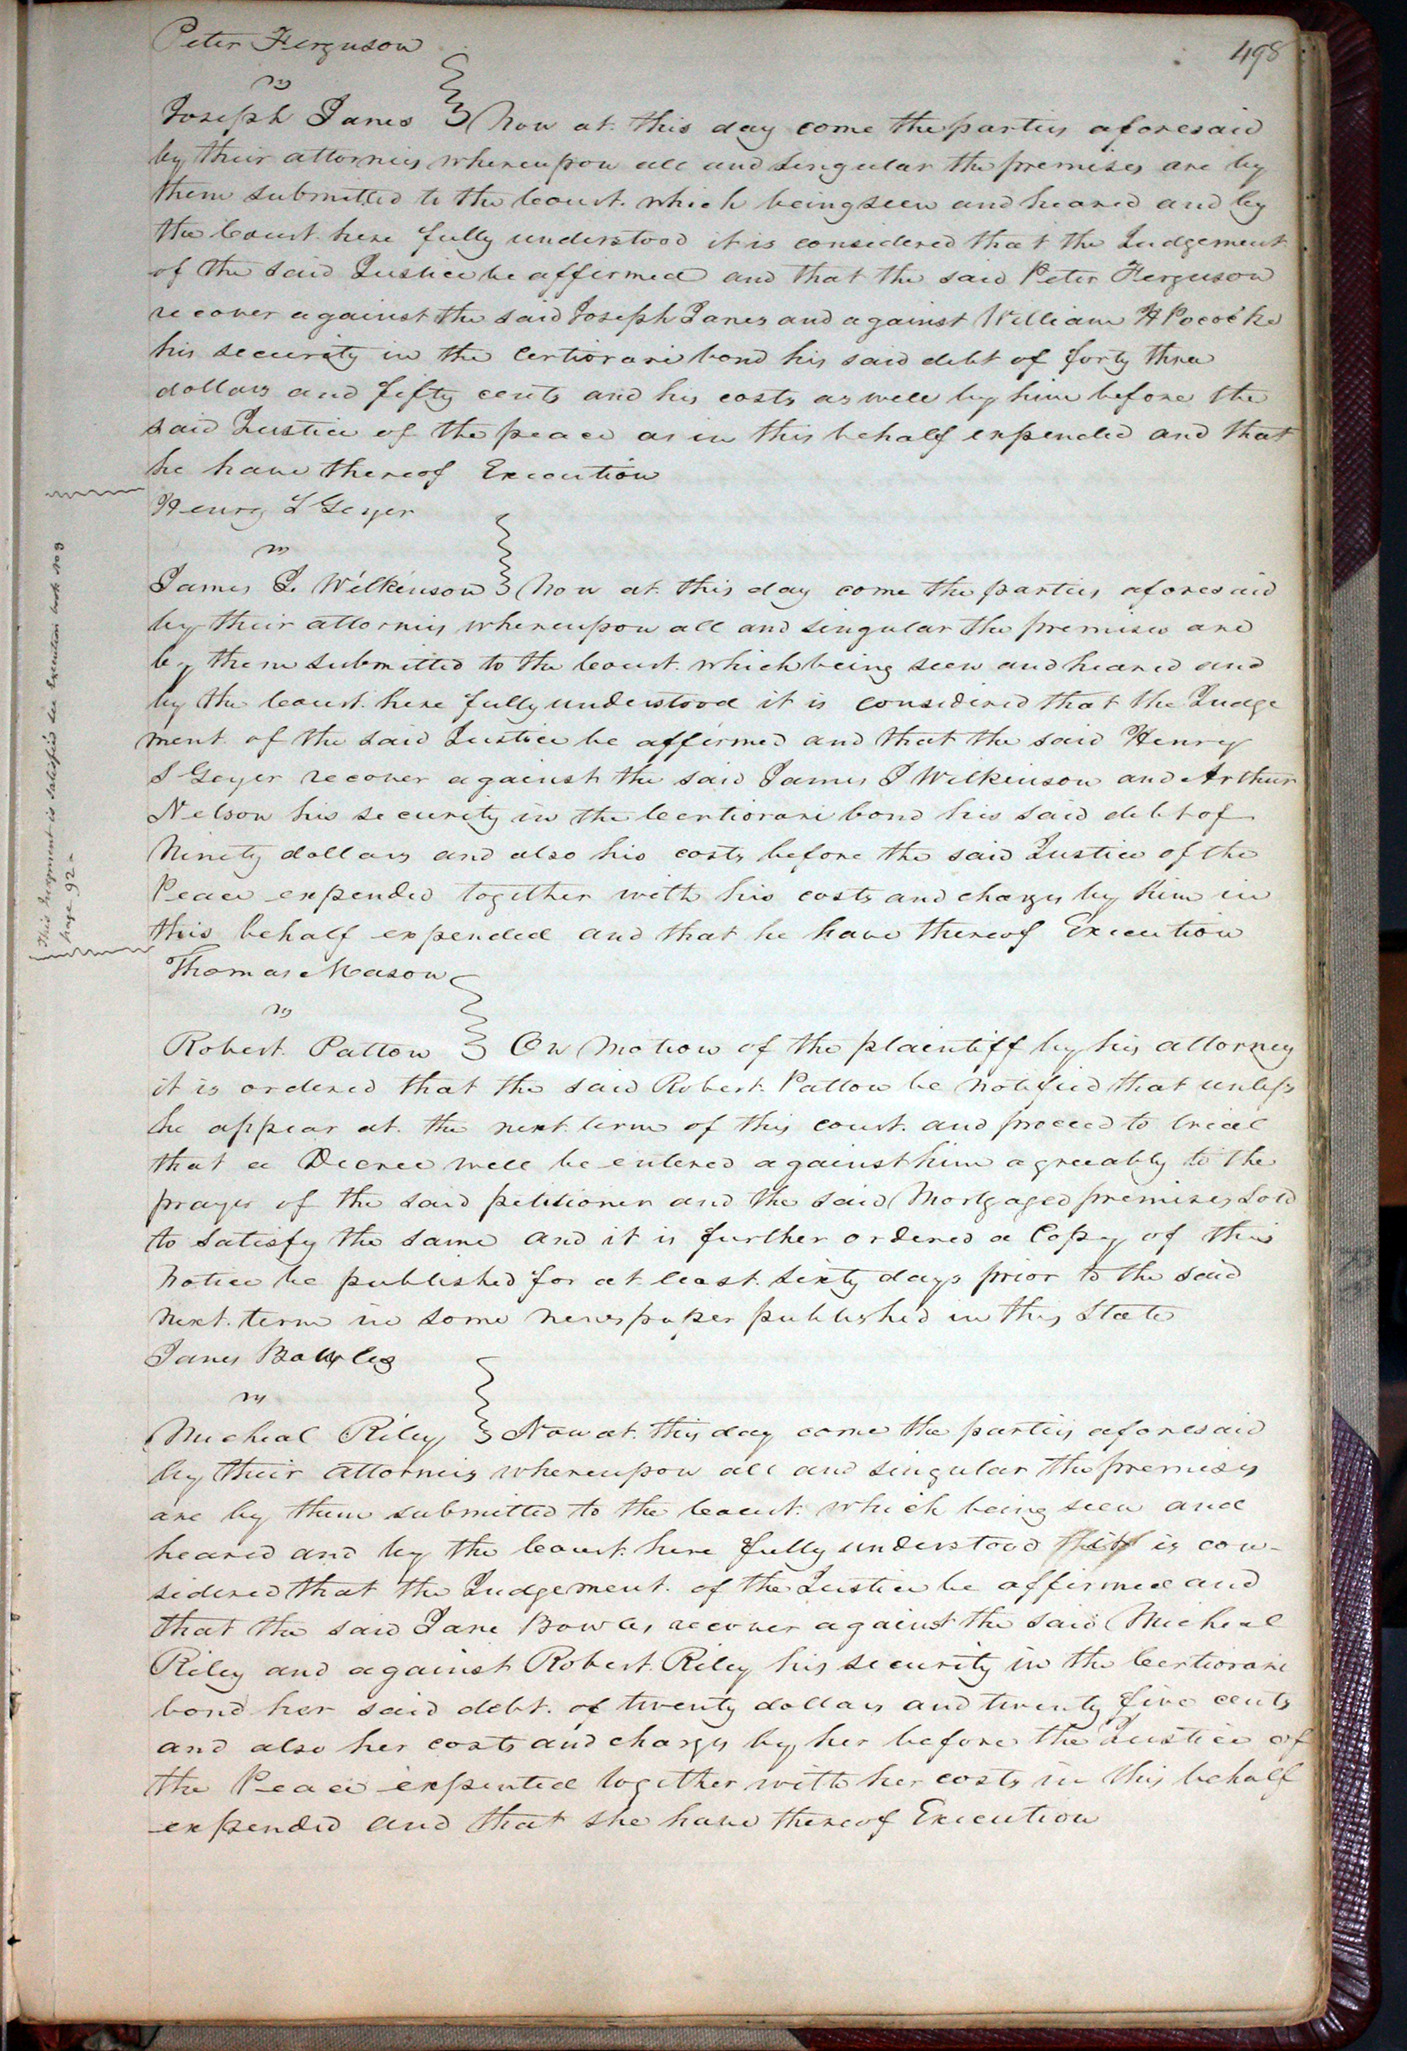 498
Peter Ferguson
vs
Joseph Janes } Now at this day come the parties aforesaid
by their attornies whereupon all and singular the premises are by
them submitted to the Court. which being seen and heared and by
the Court here fully understood it is considered that the Judgement
of the said Justice be affirmed and that the said Peter Ferguson
recover against the said Joseph Janes and against William H Pococke
his security in the Certiorari bond his said debt of forty three
dollars and fifty cents and his costs as well by him before the
said Justice of the peace as in this behalf expended and that
he have thereof Execution
Henry S Geyer
vs
James J. Wilkinson } Now at this day come the parties aforesaid
by their attornies whereupon all and singular the premises are
by them submitted to the Court. which being seen and heared and
by the Court. here fully understood it is considered that the Judge
ment of the said Justice be affirmed and that the said Henry
S Geyer recover against the said James J Wilkinson and Arthur
Nelson his security in the Certiorari bond his said debt of
Ninety dollars and also his costs before the said Justice of the
Peace expended together with his costs and charges by him in
this behalf expended and that he have thereof Execution
This Judgment is satisfied see Execution book No 3
page 92-
Thomas Mason
vs
Robert Patton } On Motion of the plaintiff by his attorney
it is ordered that the said Robert Patton be notified that unless
he appear at the next term of this court and proceed to trial
that a Decree will be entered against him agreeably to the
prayer of the said petitioner and the said Mortgaged premises sold
to satisfy the same and it is further ordered a Copy of this
Notice be published for at least sixty days prior to the said
next term in some newspaper published in this State
Janes Bowles
vs
Micheal Riley } Now at this day come the parties aforesaid
by their attornies whereupon all and singular the premises
are by them submitted to the Court. which being seen and
heared and by the Court. here fully understood it is con-
sidered that the Judgement. of the Justice be affirmed and
that the said Jane Bowles recover against the said Micheal
Riley and against Robert Riley his security in the Certiorari
bond her said debt. of twenty dollars and twenty five cents
and also her costs and charges by her before the Justice of
the Peace expented together with her costs in this behalf
expended and that she have thereof Execution